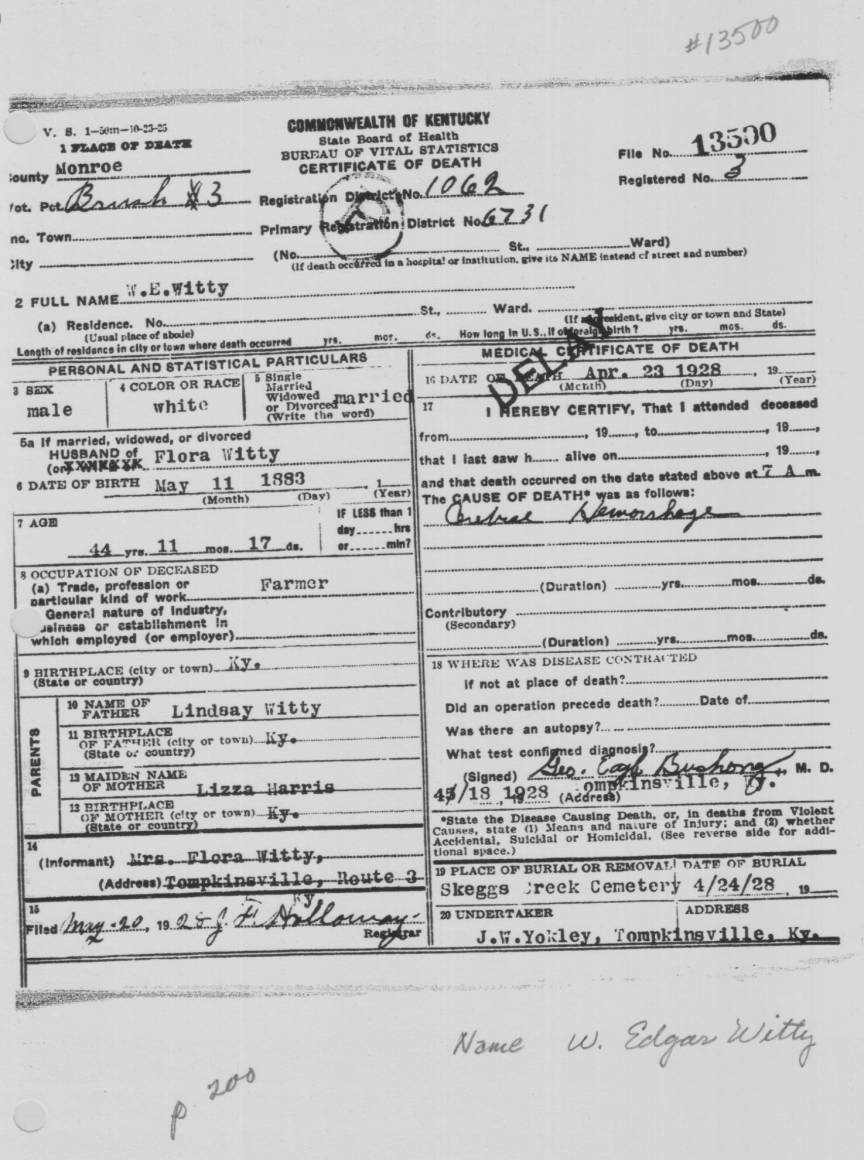 #13500
V. S. 1-50m-10-23-25
1 PLACE OF DEATH
COMMONWEALTH OF KENTUCKY
State Board of Health
BUREAU OF VITAL STATISTICS
CERTIFICATE OF DEATH
File No. 13500
Registered No. 3
ounty Monroe
ot. Pct. Brush #3
Registration District No. 1062
nc. Town
Primary Registration District No. 6731
ity
(No. St., Ward)
(If death occurred in a hospital or institution, give its NAME instead of street and number)
2 FULL NAME W.E.Witty
(a) Residence. No. St., Ward.
(Usual place of abode)
(If resident, give city or town and State)
Length of residence in city or town where death occurred yrs. mos. ds. How long in U.S., if of foreign birth? yrs. mos. ds.
DELAY
PERSONAL AND STATISTICAL PARTICULARS
3 SEX
male
4 COLOR OR RACE
white
5 Single
Married
Widowed
or Divorced
(Write the word)
married
5a If married, widowed, or divorced
HUSBAND of Flora Witty
(or
6 DATE OF BIRTH May 11 1883, 1
(Month) (Day) (Year)
7 AGE
44 yrs. 11 mos. 17 ds.
IF LESS than 1
day hrs
or min?
8 OCCUPATION OF DECEASED
(a) Trade, profession or
particular kind of work Farmer
General nature of Industry,
usiness or establishment in
which employed (or employer)
9 BIRTHPLACE (city or town) Ky.
(State or country)
PARENTS
10 NAME OF
FATHER Lindsay Witty
11 BIRTHPLACE
OF FATHER (city or town) Ky.
(State or country)
12 MAIDEN NAME
OF MOTHER Lizza Harris
13 BIRTHPLACE
OF MOTHER (city or town) Ky.
(State or country)
14
(Informant) Mrs. Flora Witty,
(Address) Tompkinsville, Route 3
Ky
15
Filed May-20, 1928 J. F. Holloway
Registrar
MEDICAL CERTIFICATE OF DEATH
16 DATE OF DEATH Apr. 23 1928, 19
(Month) (Day) (Year)
17
I HEREBY CERTIFY, That I attended deceased
from , 19 , to , 19 ,
that I last saw h alive on , 19 ,
and that death occurred on the date stated above at 7 A m.
The CAUSE OF DEATH* was as follows:
Cerebral Hemorrhage
(Duration) yrs. mos. ds.
Contributory
(Secondary)
(Duration) yrs. mos. ds.
18 WHERE WAS DISEASE CONTRACTED
if not at place of death?
Did an operation precede death? Date of
Was there an autopsy?
What test confirmed diagnosis?
(Signed) Geo. Bushong, M. D.
/18, 1928 (Address) ompkinsville, Ky.
*State the Disease Causing Death, or, in deaths from Violent
Causes, state (1) Means and nature of Injury; and (2) whether
Accidental, Suicidal or Homicidal. (See reverse side for addi-
tional space.)
19 PLACE OF BURIAL OR REMOVAL
Skeggs Creek Cemetery
DATE OF BURIAL
4/24/28, 19
20 UNDERTAKER
ADDRESS
J.W.Yokley, Tompkinsville, Ky.
Name W. Edgar Witty
p 200